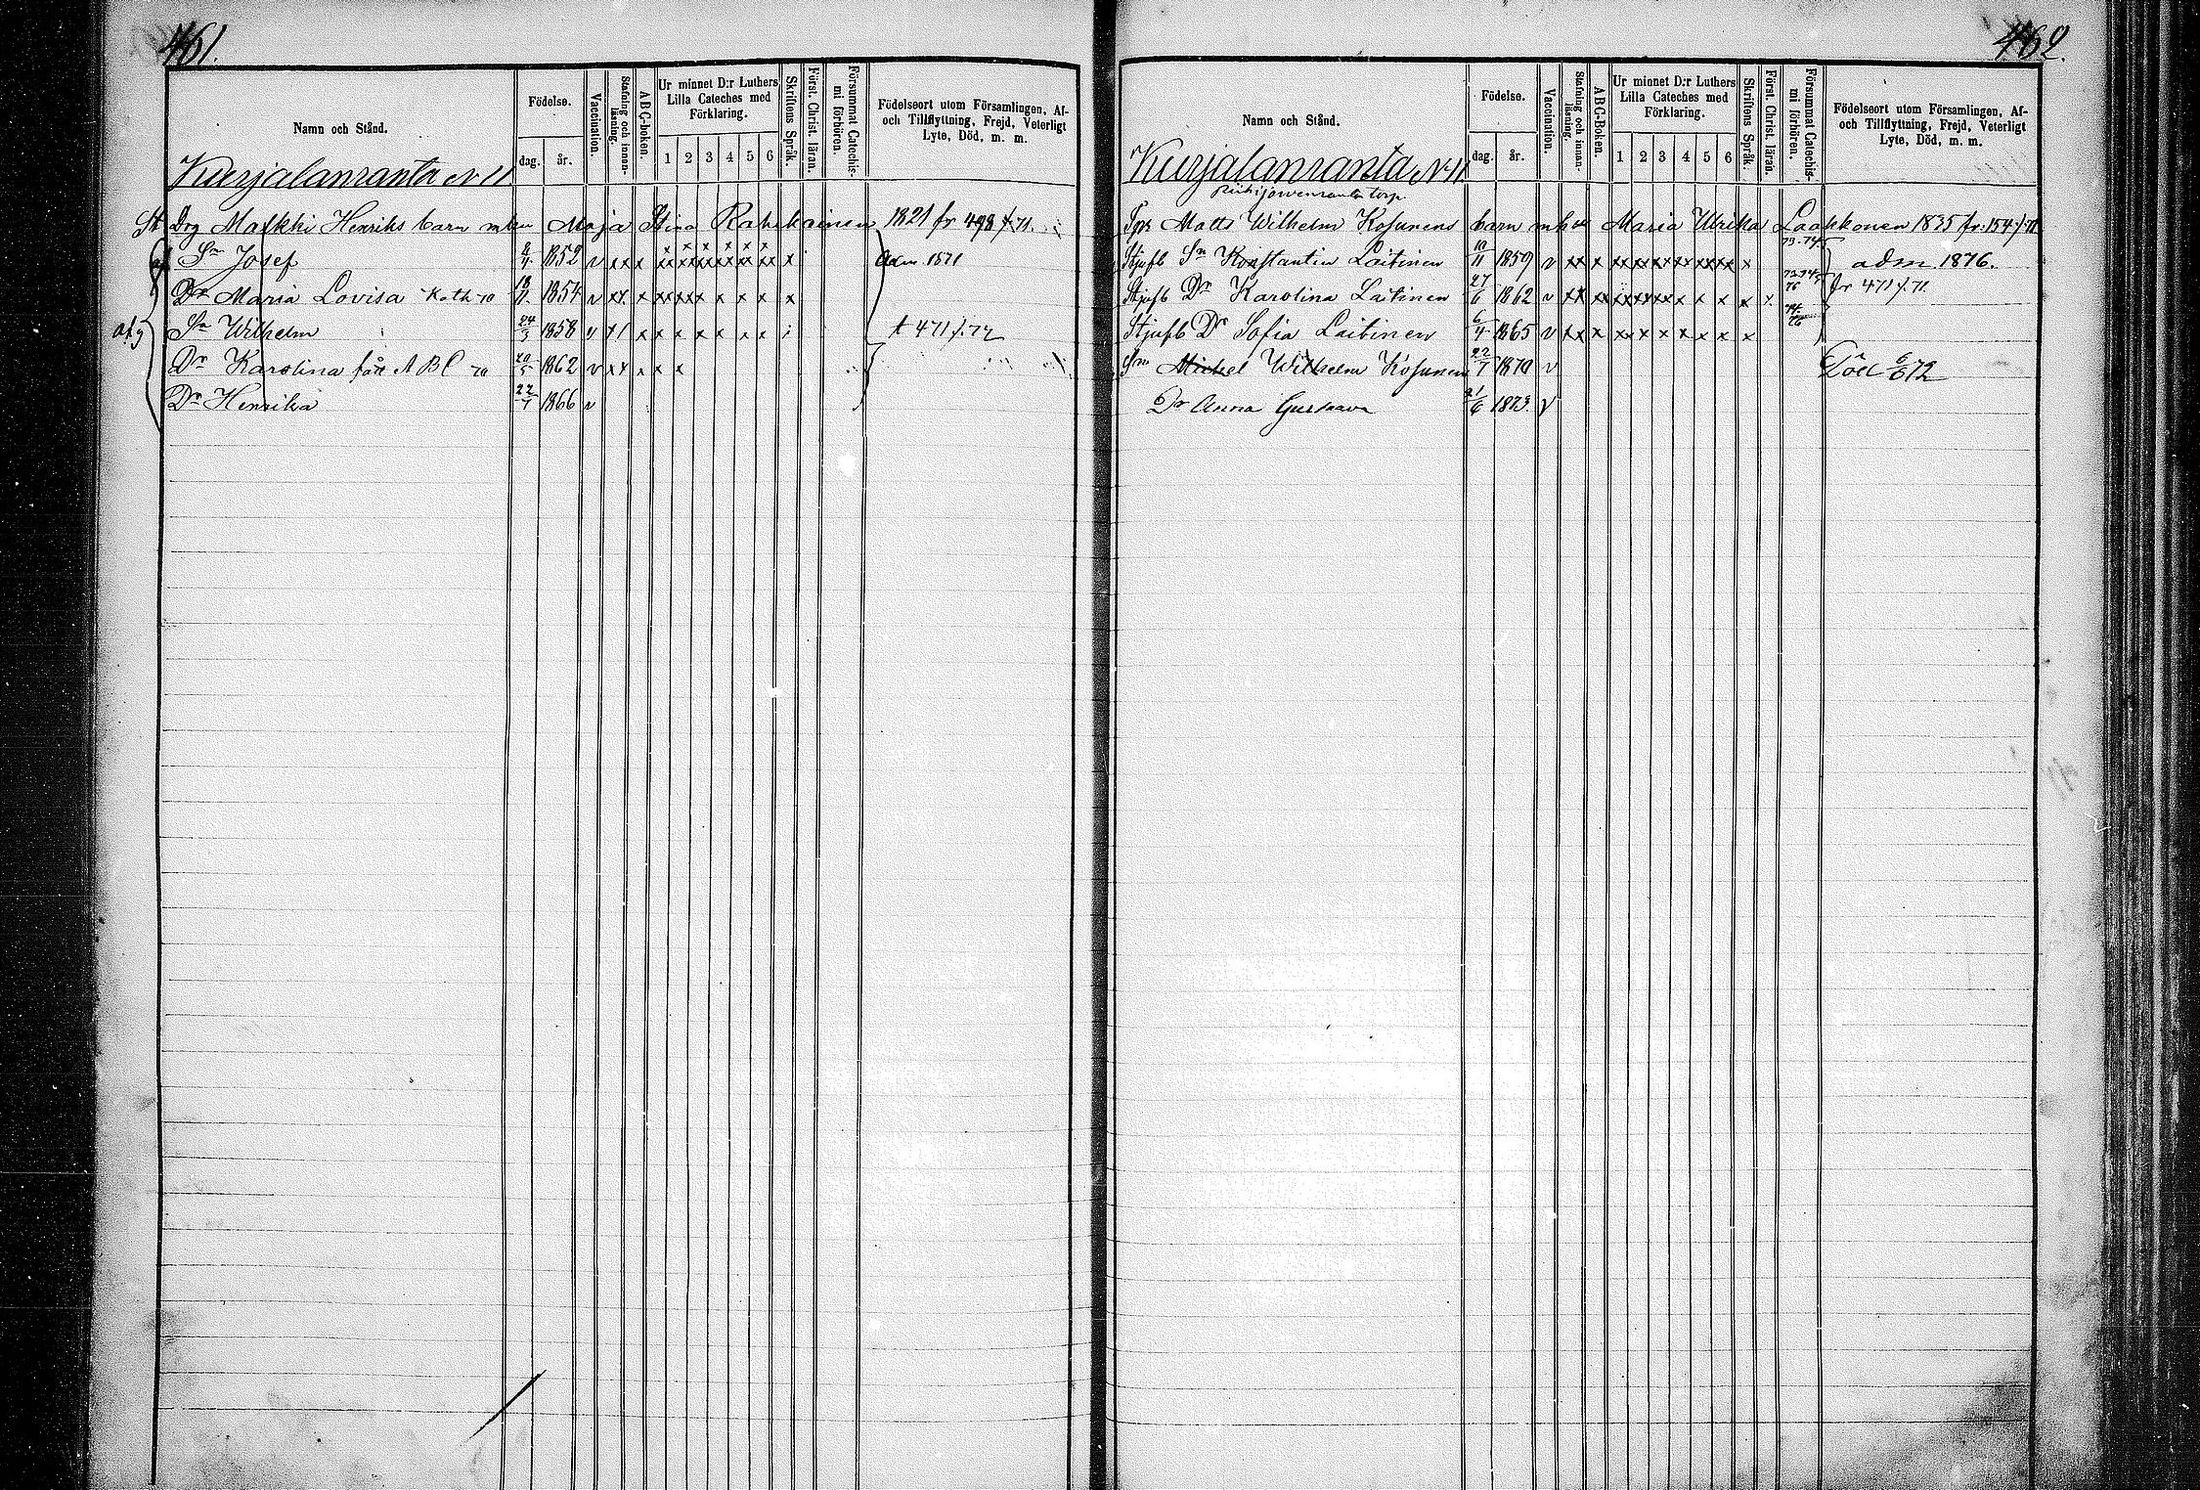 461.
Namn och Stånd.
Födelse.
dag. år.
Vaccination.
Stafning och innanläsning.
A B C-boken.
Ur minnet D:r Luthers
Lilla Cateches med
Förklaring.
1 2 3 4 5 6
Skriftens Språk.
Först. Christ. läran.
Försummat Catechismi förhören.
Födelseort utom Församlingen, Af-
och Tillflyttning, Frejd, Veterligt
Lyte, Död, m. m.
Kurjalanranta N 11
Drg Matthi Henriks barn m hu Maja Stina 1821 fr 498 /.71.
Sn Josef 1852 v xx x x x x x x x x adm. 1871
Dr Maria Lovisa 18/11 1854 v xx x x x x x x x x
Sn Wilhelm 24/3 1858 v x x x x x x x x t 471 /. 72
Dr Karolina får A B C 1862 v xx x x x
Dr Henrika 22/7 1866 v
462.
Namn och Stånd.
Födelse.
dag. år.
Vaccination.
Stafning och innanläsning.
A B C-Boken.
Ur minnet D:r Luthers
Lilla Cateches med
Förklaring.
1 2 3 4 5 6
Skriftens Språk.
Först. Christ. läran.
Försummat Catechismi förhören.
Födelseort utom Församlingen, Af-
och Tillflyttning, Frejd, Veterligt
Lyte, Död, m. m.
Kurjalanranta N 11
torp
Matts Wilhelm Kosunens barn m hu Maria Ulrika Laakkonen 1835 fr. 154 /. 71
Stjufb Sn Konstantin Laitinen 10/11 1859 v xx x xx xx xx xx xx xx x 73.74 adm. 1876.
Stjufb Dr Karolina Laitinen 27/6 1862 v xx xx xx xx xx x x x x x fr 471 /. 71.
Stjufb Dr Sofia Laitinen 6/4 1865 v xx x x x x x x x x
Sn Michel Wilhelm Kosunen 22/7 1870 v Död 6/6 72
Dr Anna Gustava 21/6 1873. v